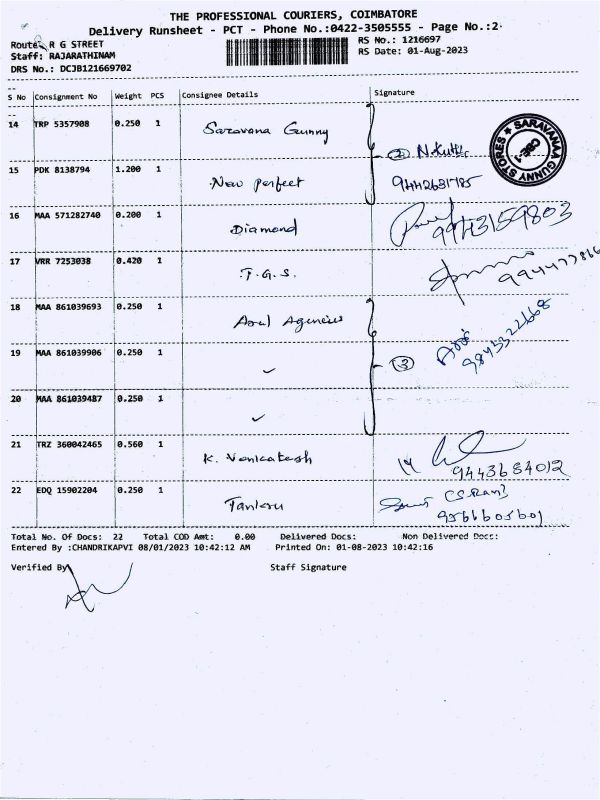 THE PROFESSIONAL COURIERS, COIMBATORE
Delivery Runsheet - PCT - Phone No.:0422-3505555 - Page No.:2
Route: R G STREET
RS No.: 1216697
Staff: RAJARATHINAM
RS Date: 01-Aug-2023
DRS No.: DCJB121669702
S No Consignment No Weight PCS Consignee Details Signature
14 TRP 5357908 0.250 1 Saravana Gunny
SARAVANA GUNNY STORES CBE-1
2
15 PDK 8138794 1.200 1 New Perfect 9442631785
16 MAA 571282740 0.200 1 Diamond 9943159803
17 VRR 7253038 0.420 1 T.G.S.
18 MAA 861039693 0.250 1 Arul Agencies 9843322668
19 MAA 861039906 0.250 1 ✓ 3
20 MAA 861039487 0.250 1 ✓
21 TRZ 360042465 0.560 1 K. Venkatesh 9443684012
22 EDQ 15902204 0.250 1
Total No. Of Docs: 22 Total COD Amt: 0.00 Delivered Docs: Non Delivered Docs:
Entered By :CHANDRIKAPVI 08/01/2023 10:42:12 AM Printed On: 01-08-2023 10:42:16
Verified By Staff Signature